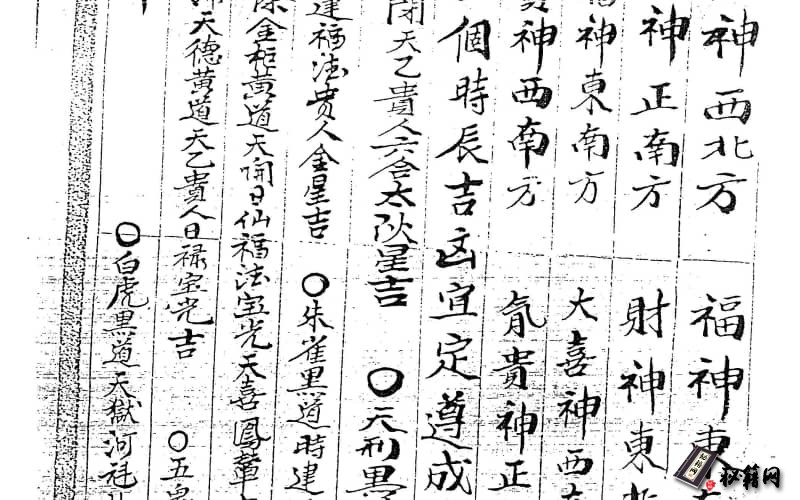 神西北方 福神東
神正南方 財神東
神東南方 大喜神西
神西南方 貴神正
個時辰吉凶宜定遵成
閉天乙貴人六合太阴星吉 〇天刑黑
建福法贵人金星吉 〇朱雀黑道時建
除金柜黄道天開日仙福法宝光天喜鳳輦
天德黄道天乙貴人日禄宝光吉 〇五鬼
〇白虎黑道天獄河
秘籍网